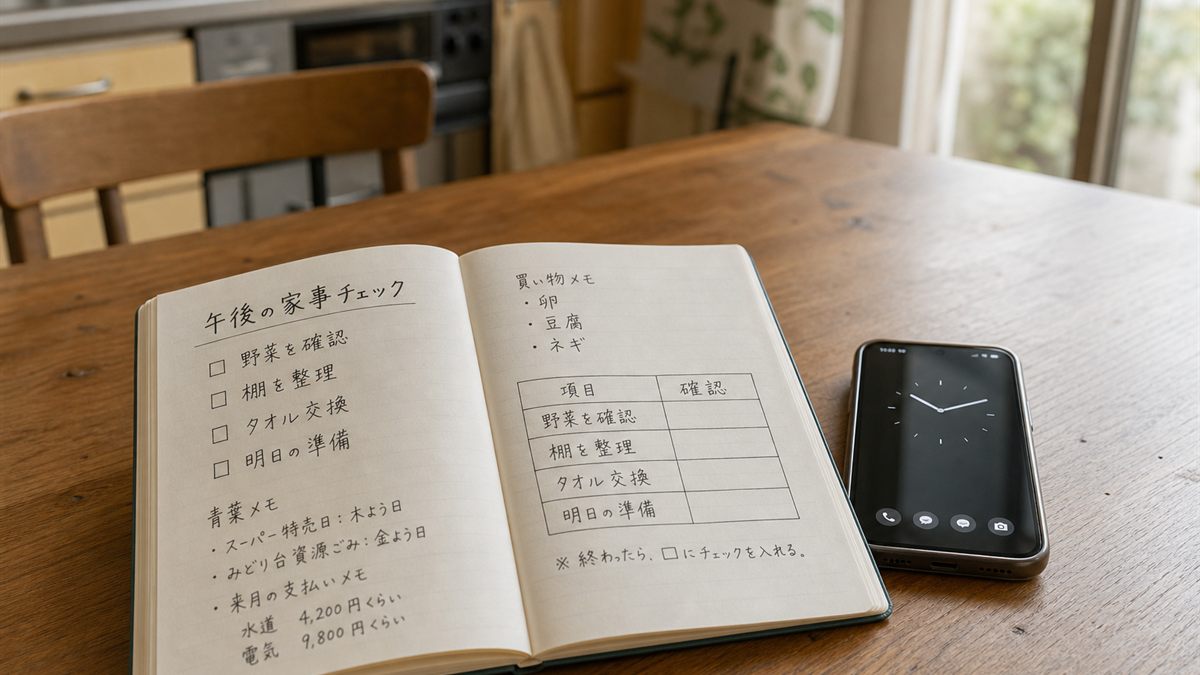 午後の家事チェック
□ 野菜を確認
□ 棚を整理
□ タオル交換
□ 明日の準備
青葉メモ
・スーパー特売日：木よう日
・みどり台資源ごみ：金よう日
・来月の支払いメモ
水道 4,200円くらい
電気 9,800円くらい
買い物メモ
・卵
・豆腐
・ネギ
項目 確認
野菜を確認
棚を整理
タオル交換
明日の準備
※ 終わったら、□にチェックを入れる。